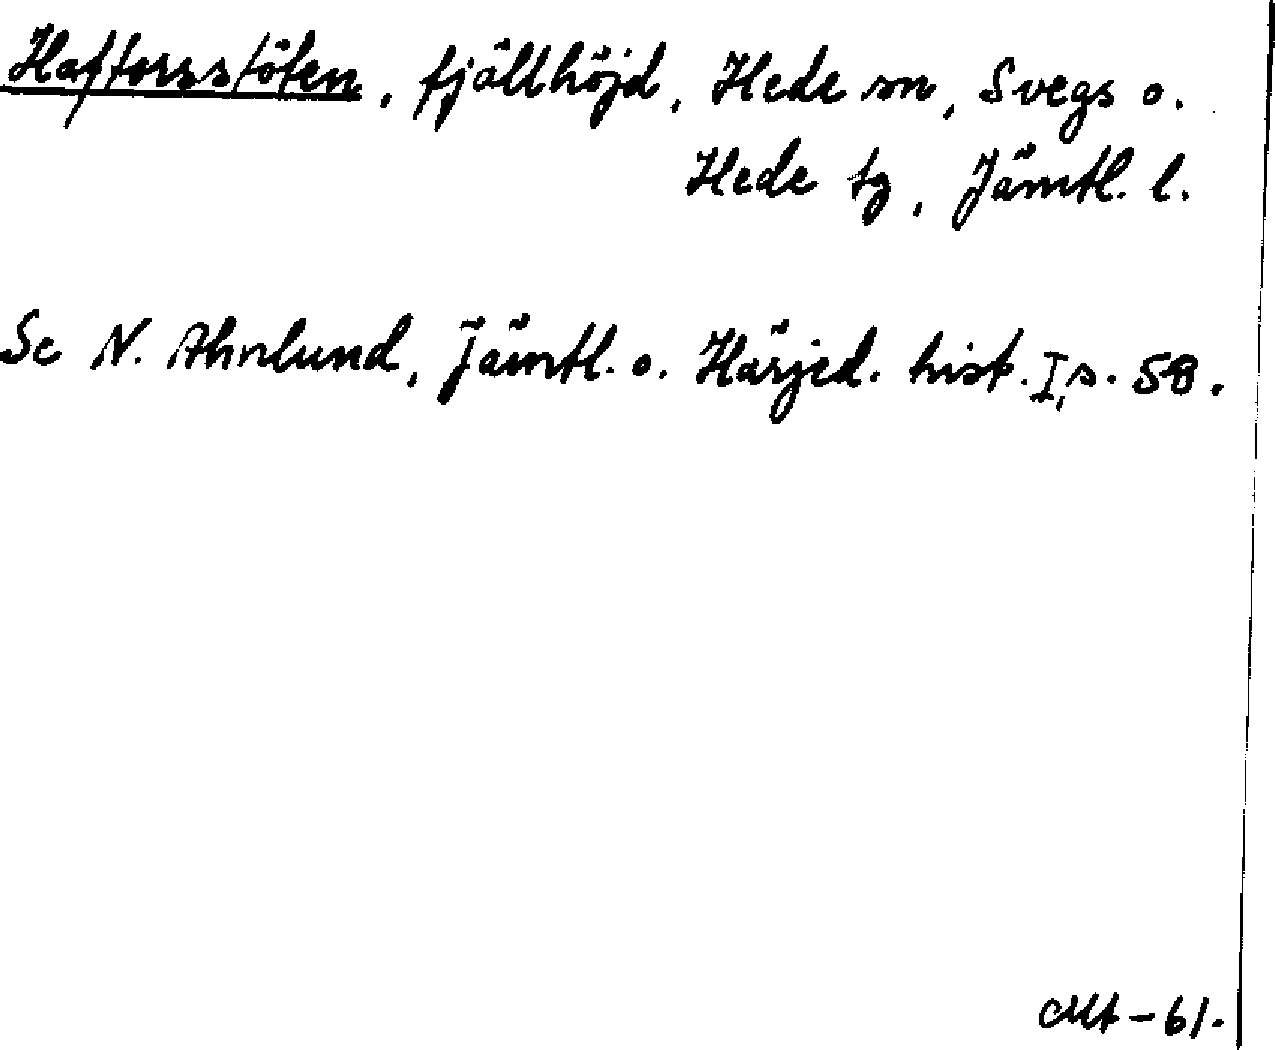 Haftorsstöten, fjällhöjd, Hede sn, Svegs o.
Hede tg, Jämtl. l.
Se N. Ahnlund, Jämtl. o. Härjed. hist. I, s. 58.
-61.